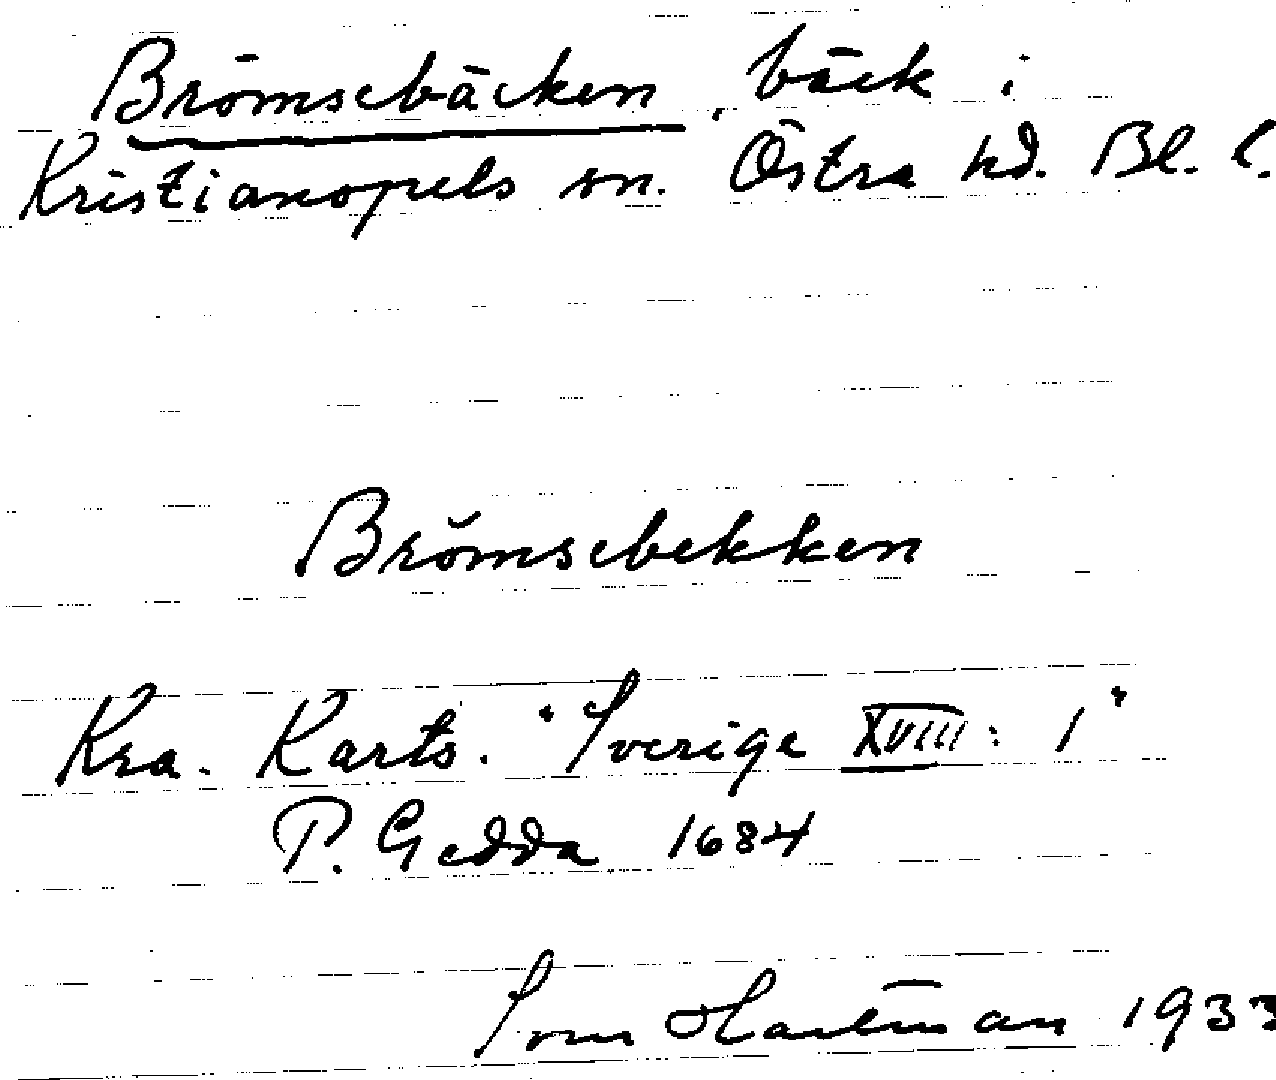 Brömsebäcken, bäck i
Kristianopels sn. Östra hd. Bl. l.
Brömsebekken
Kra. Karts. "Sverige XVIII: 1"
P. Gedda 1684
Sven Hartman 1933